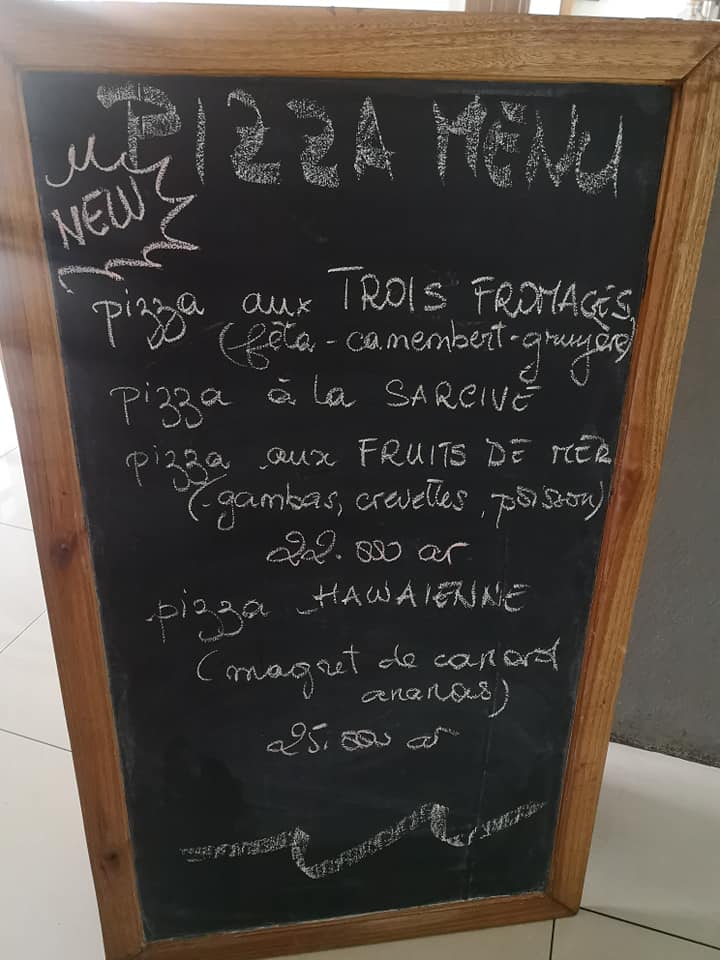 PIZZA MENU
NEW
pizza aux TROIS FROMAGES
(fêta - camembert - gruyère)
pizza à la SARCIVE
pizza aux FRUITS DE MER
(gambas, crevettes, poisson)
22.000 ar
pizza HAWAIENNE
(magret de canard
ananas)
25.000 ar